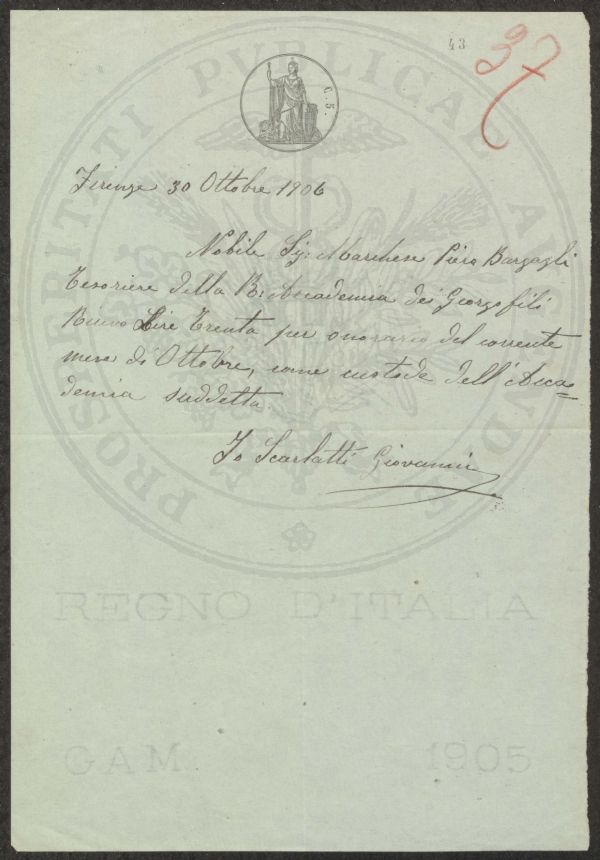 43
37
C. 5.
PROSPERITATI PVBLICAE AVGENDAE
Firenze 30 Ottobre 1906
Nobile Sig: Marchese Piero Bargagli
Tesoriere della R: Accademia dei Georgofili
Ricevo Lire Trenta per onorario del corrente
mese di Ottobre, come custode dell'Acca=
demia suddetta.
Io Scarlatti Giovanni
REGNO D'ITALIA
GAM 1905